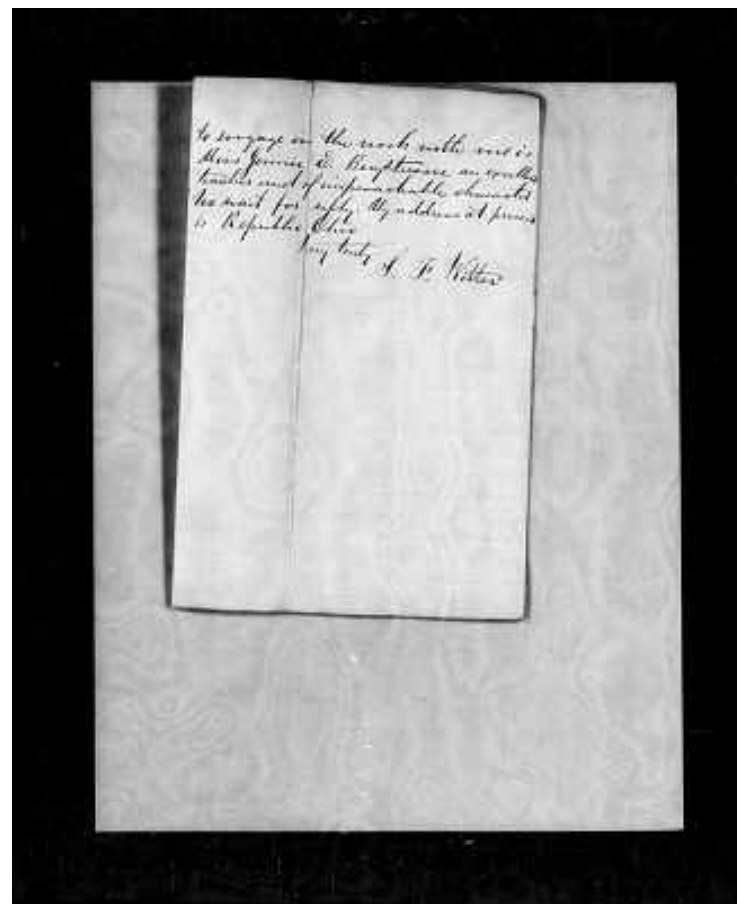 to engage in the work with me is
Miss Jennie E. an excellent
teacher and of unimpeachable character
We wait for reply. My address at present
is Republic Ohio
Very truly
S. F.